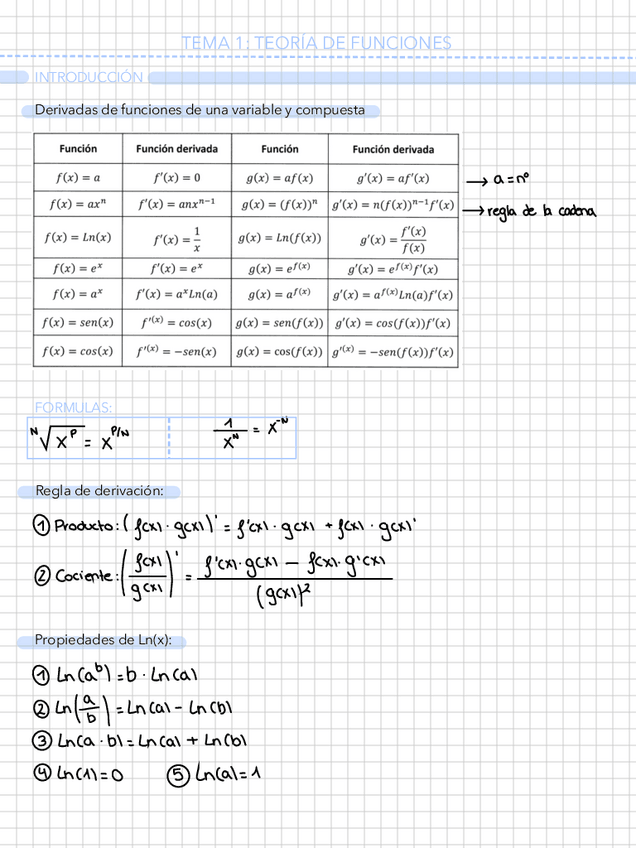 TEMA 1: TEORÍA DE FUNCIONES
INTRODUCCIÓN
Derivadas de funciones de una variable y compuesta
Función Función derivada Función Función derivada
f(x) = a f′(x) = 0 g(x) = af(x) g′(x) = af′(x) → a = nº
f(x) = axⁿ f′(x) = anxⁿ⁻¹ g(x) = (f(x))ⁿ g′(x) = n(f(x))ⁿ⁻¹f′(x) → regla de la cadena
f(x) = Ln(x) f′(x) = 1/x g(x) = Ln(f(x)) g′(x) = f′(x)/f(x)
f(x) = e^x f′(x) = e^x g(x) = e^f(x) g′(x) = e^f(x) f′(x)
f(x) = a^x f′(x) = a^x Ln(a) g(x) = a^f(x) g′(x) = a^f(x) Ln(a)f′(x)
f(x) = sen(x) f′(x) = cos(x) g(x) = sen(f(x)) g′(x) = cos(f(x))f′(x)
f(x) = cos(x) f′(x) = −sen(x) g(x) = cos(f(x)) g′(x) = −sen(f(x))f′(x)
FORMULAS:
ᴺ√(x^P) = x^(P/N) 1/x^N = x^-N
Regla de derivación:
① Producto: (f(x) · g(x))' = f'(x) · g(x) + f(x) · g(x)'
② Cociente: (f(x)/g(x))' = (f'(x) · g(x) − f(x) · g'(x))/(g(x))²
Propiedades de Ln(x):
① Ln(a^b) = b · Ln(a)
② Ln(a/b) = Ln(a) − Ln(b)
③ Ln(a · b) = Ln(a) + Ln(b)
④ Ln(1) = 0 ⑤ Ln(a) = 1